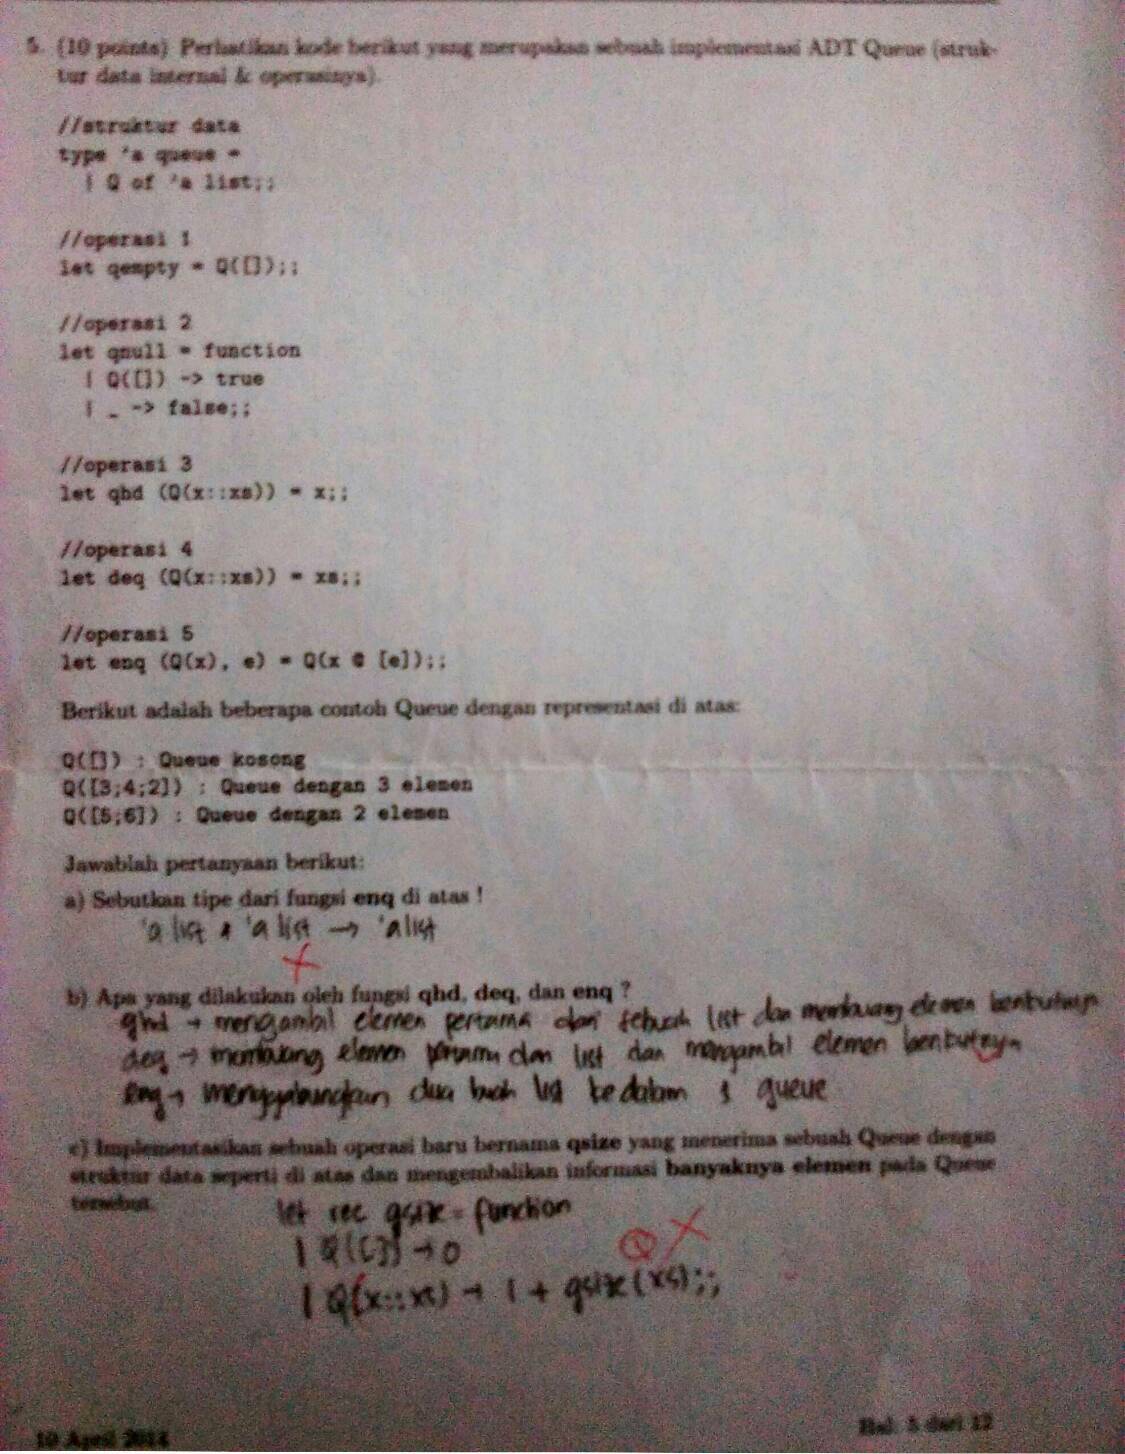 5. (10 points) Perhatikan kode berikut yang merupakan sebuah implementasi ADT Queue (struk-
tur data internal & operasinya).
//struktur data
type 'a queue =
| Q of 'a list;;
//operasi 1
let qempty = Q([]);;
//operasi 2
let qnull = function
| Q([]) -> true
| _ -> false;;
//operasi 3
let qhd (Q(x::xs)) = x;;
//operasi 4
let deq (Q(x::xs)) = xs;;
//operasi 5
let enq (Q(x), e) = Q(x @ [e]);;
Berikut adalah beberapa contoh Queue dengan representasi di atas:
Q([]) : Queue kosong
Q([3;4;2]) : Queue dengan 3 elemen
Q([5;6]) : Queue dengan 2 elemen
Jawablah pertanyaan berikut:
a) Sebutkan tipe dari fungsi enq di atas !
'a list * 'a list → 'a list
b) Apa yang dilakukan oleh fungsi qhd, deq, dan enq ?
qhd → mengambil elemen pertama dari sebuah list dan membuang elemen berikutnya
deq → membuang elemen pertama dari list dan mengambil elemen berikutnya
enq → menggabungkan dua buah list ke dalam 1 queue
c) Implementasikan sebuah operasi baru bernama qsize yang menerima sebuah Queue dengan
struktur data seperti di atas dan mengembalikan informasi banyaknya elemen pada Queue
tersebut.
let rec qsize = function
| Q([]) → 0
Q
| Q(x::xs) → 1 + qsize(xs);;
10 April 2014
Hal. 5 dari 12